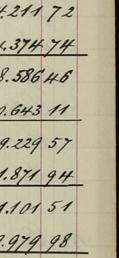 .211 72
.374 74
8.586 46
0.643 11
9.229 57
1.871 94
1.101 51
2.979 98